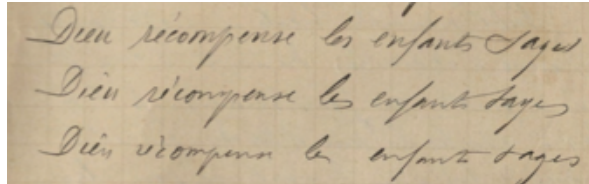 Dieu récompense les enfants sages
Dieu récompense les enfants sages
Dieu récompense les enfants sages